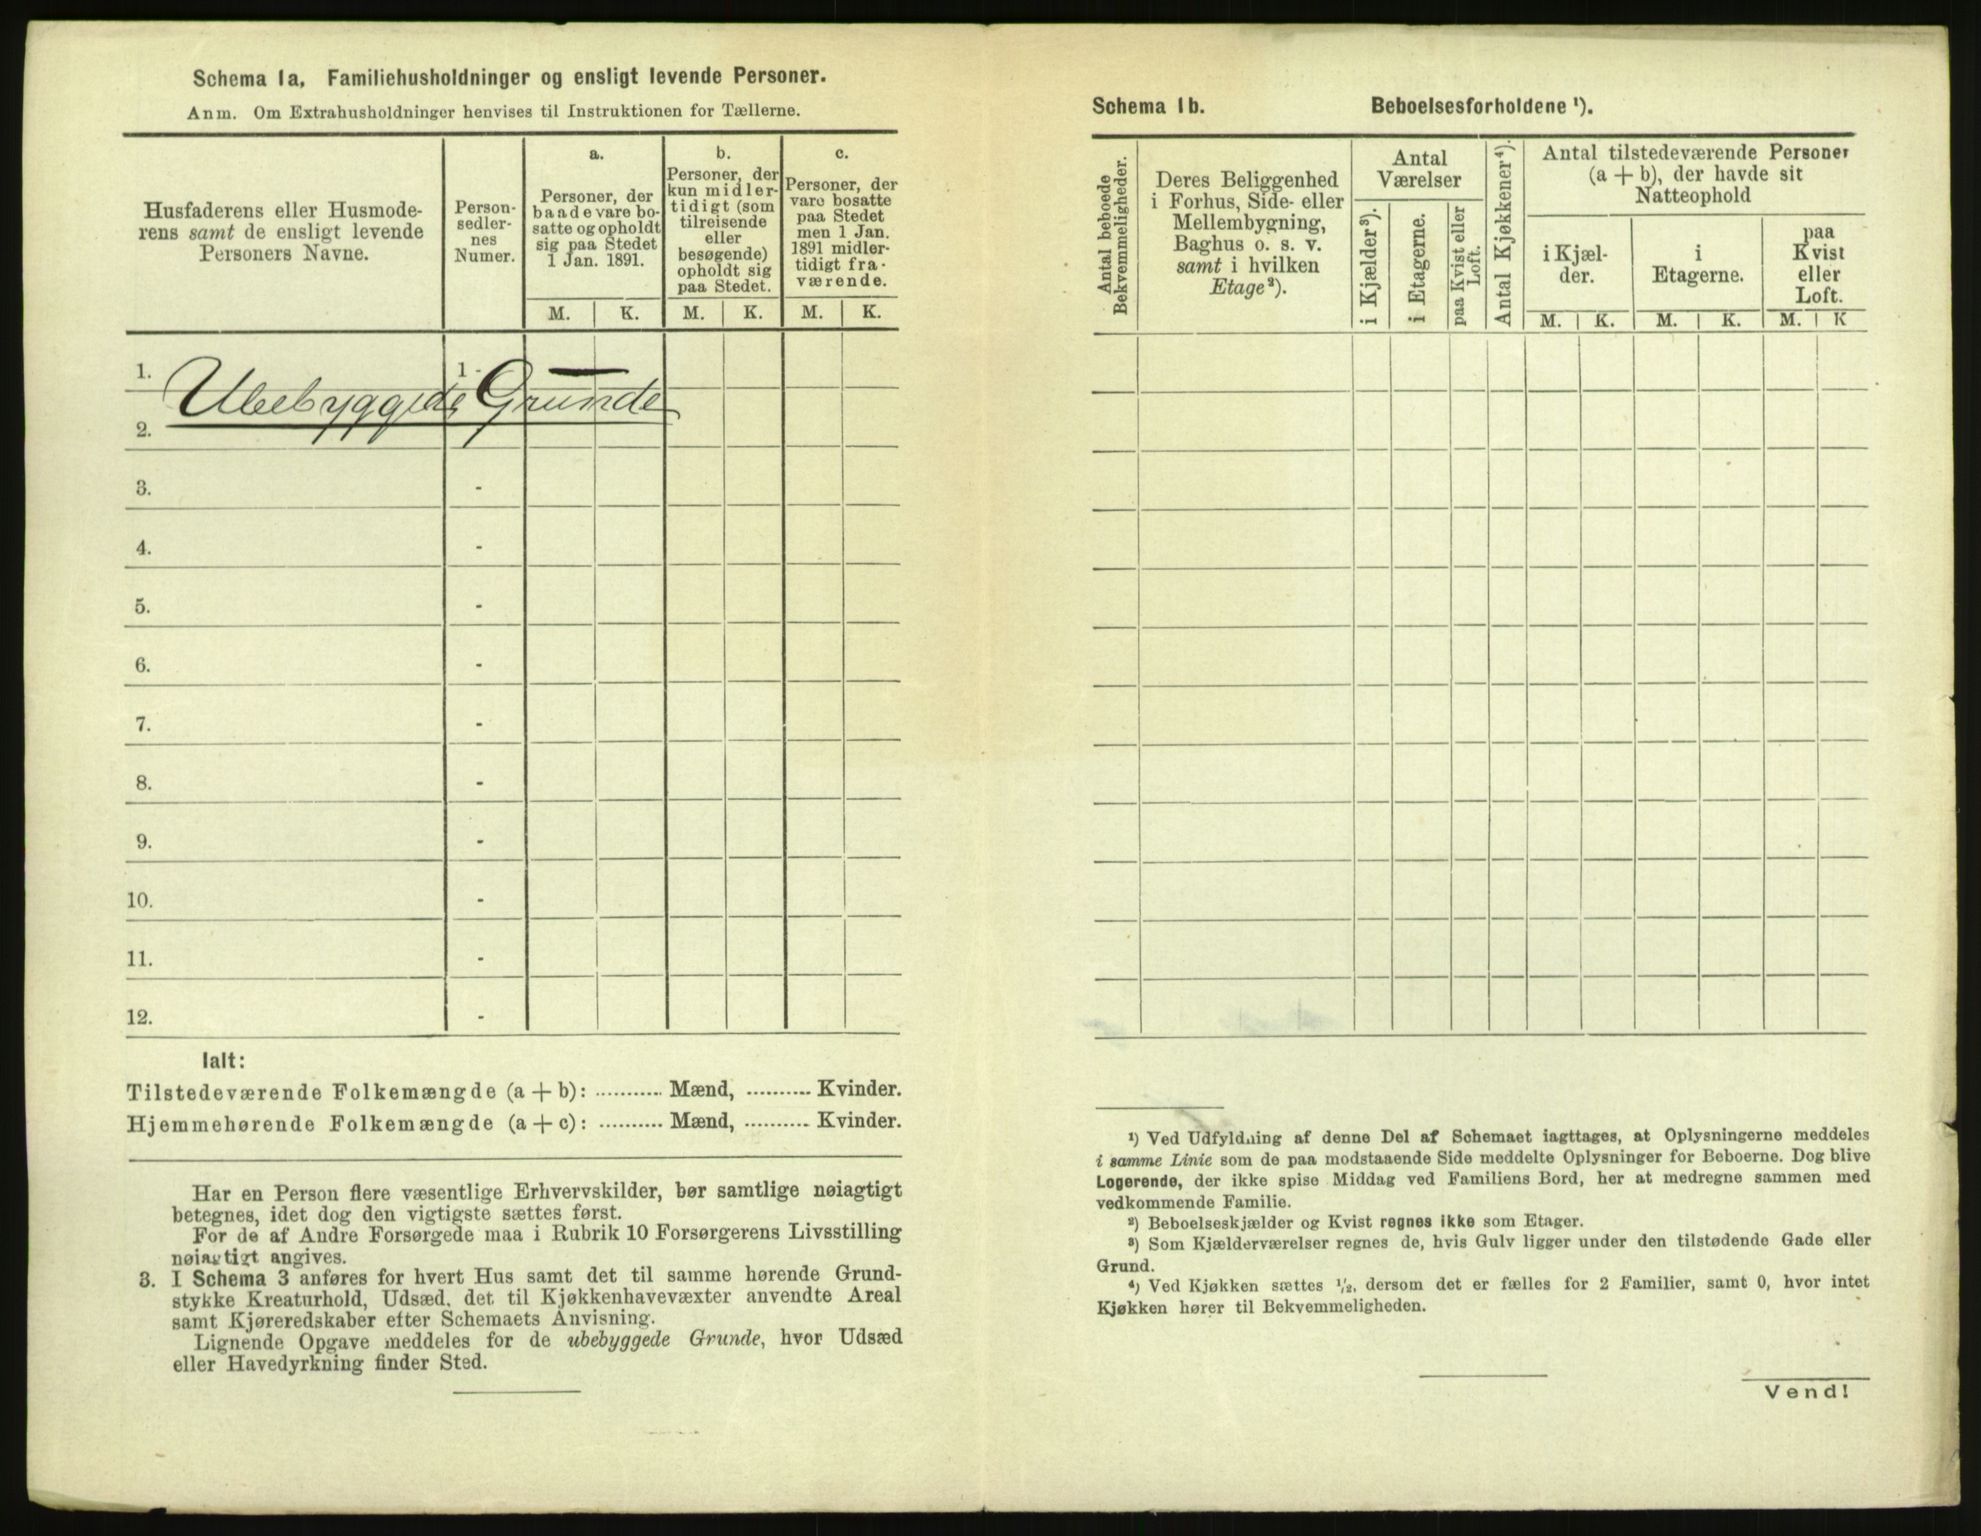 Schema 1a. Familiehusholdninger og ensligt levende Personer.
Anm. Om Extrahusholdninger henvises til Instruktionen for Tællerne.
Husfaderens eller Husmode-
rens samt de ensligt levende
Personers Navne.
Person-
sedler-
nes
Numer.
a.
Personer, der
baade vare bo-
satte og opholdt
sig paa Stedet
1 Jan. 1891.
b.
Personer, der
kun midler-
tidigt (som
tilreisende
eller
besøgende)
opholdt sig
paa Stedet.
c.
Personer, der
vare bosatte
paa Stedet
men 1 Jan.
1891 midler-
tidigt fra-
værende.
M. K. M. K. M. K.
1. 1 -
Ubebyggede Grunde
2.
3. -
4. -
5. -
6. -
7. -
8. -
9. -
10. -
11. -
12. -
Ialt:
Tilstedeværende Folkemængde (a + b): .......... Mænd, .......... Kvinder.
Hjemmehørende Folkemængde (a + c): .......... Mænd, .......... Kvinder.
Har en Person flere væsentlige Erhvervskilder, bør samtlige nøiagtigt
betegnes, idet dog den vigtigste sættes først.
For de af Andre Forsørgede maa i Rubrik 10 Forsørgerens Livsstilling
nøiagtigt angives.
3. I Schema 3 anføres for hvert Hus samt det til samme hørende Grund-
stykke Kreaturhold, Udsæd, det til Kjøkkenhavevæxter anvendte Areal
samt Kjøreredskaber efter Schemaets Anvisning.
Lignende Opgave meddeles for de ubebyggede Grunde, hvor Udsæd
eller Havedyrkning finder Sted.
Schema 1b. Beboelsesforholdene ¹).
Antal beboede
Bekvemmeligheder.
Deres Beliggenhed
i Forhus, Side- eller
Mellembygning,
Baghus o. s. v.
samt i hvilken
Etage²).
Antal
Værelser
i Kjælder³).
i Etagerne.
paa Kvist eller
Loft.
Antal Kjøkkener⁴).
Antal tilstedeværende Personer
(a + b), der havde sit
Natteophold
i Kjæl-
der.
i
Etagerne.
paa
Kvist
eller
Loft.
M. K. M. K. M. K
¹) Ved Udfyldning af denne Del af Schemaet iagttages, at Oplysningerne meddeles
i samme Linie som de paa modstaaende Side meddelte Oplysninger for Beboerne. Dog blive
Logerende, der ikke spise Middag ved Familiens Bord, her at medregne sammen med
vedkommende Familie.
²) Beboelseskjælder og Kvist regnes ikke som Etager.
³) Som Kjælderværelser regnes de, hvis Gulv ligger under den tilstødende Gade eller
Grund.
⁴) Ved Kjøkken sættes ¹/₂, dersom det er fælles for 2 Familier, samt 0, hvor intet
Kjøkken hører til Bekvemmeligheden.
Vend!